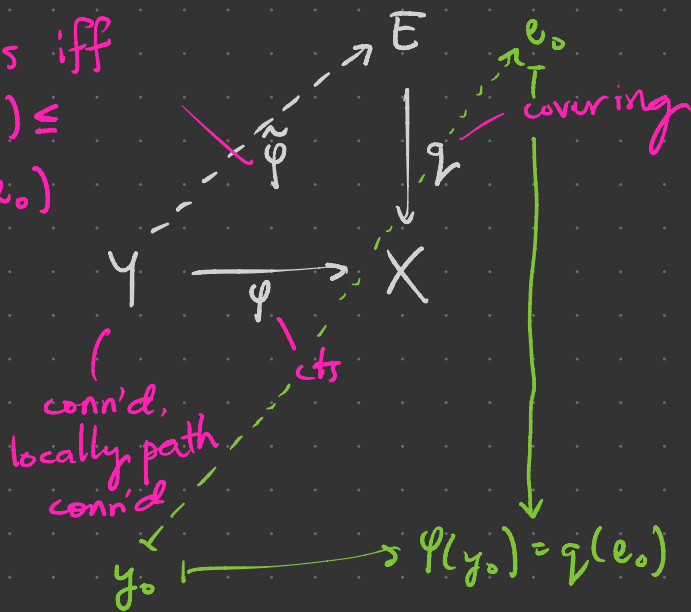 s iff
) ≤
e₀)
E
e₀
covering
φ̃
q
Y
X
φ
cts
conn'd,
locally path
conn'd
y₀
φ(y₀) = q(e₀)